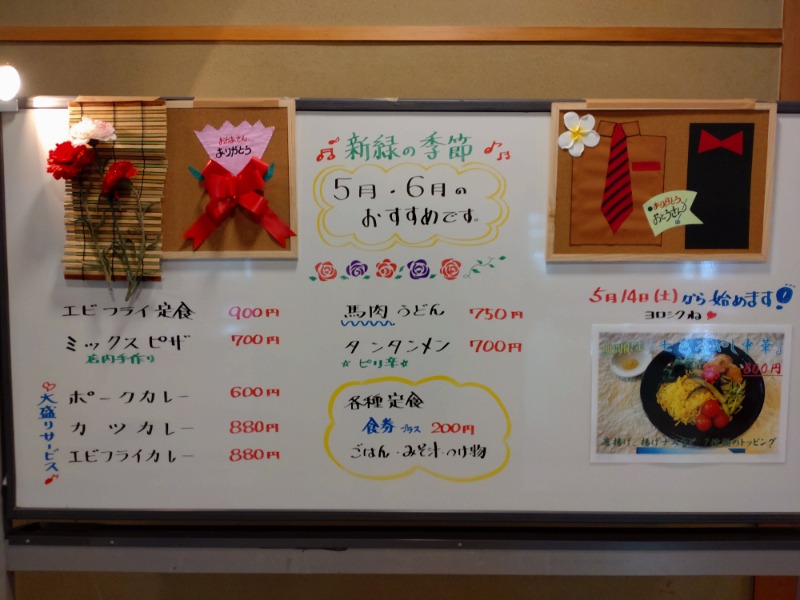 おかあさん
ありがとう
新緑の季節
5月・6月の
おすすめです。
ありがとう
おとうさん
エビフライ定食 900円
ミックスピザ 700円
店内手作り
大盛りサービス
ポークカレー 600円
カツカレー 880円
エビフライカレー 880円
馬肉うどん 750円
タンタンメン 700円
☆ピリ辛☆
各種定食
食券プラス 200円
ごはん・みそ汁・つけ物
5月14日(土)から始めます!
ヨロシクね
中華』
800円
唐揚げ、揚げナス
のトッピング